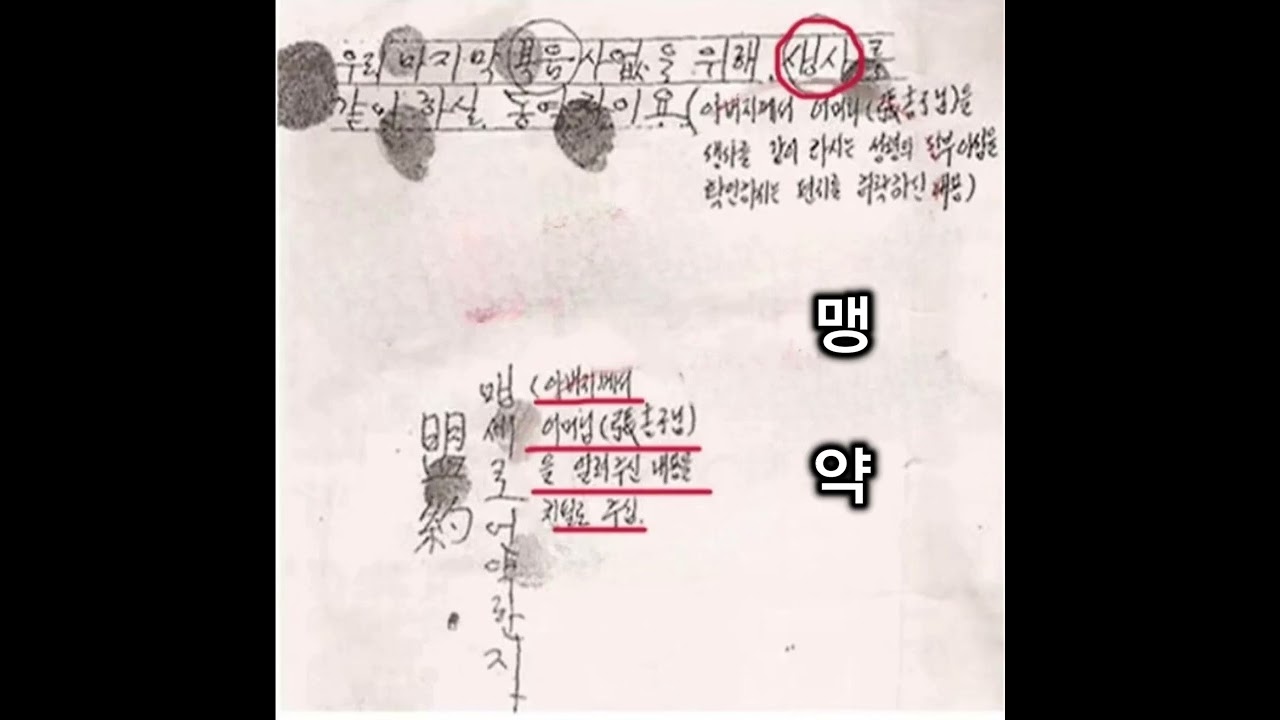 우리 마지막 복음 사업을 위해. 생사를
같이 하실. 동역자이요.
(아버지께서 어머니(張吉子님)을
생사를 같이 하시는 성령의 신부이심을
확인하시는 편지를 허락하신 내용)
맹세로 언약한 지
盟約
(아버지께서
어머님(張吉子님)
을 알려주신 내용을
친필로 주심.
맹약